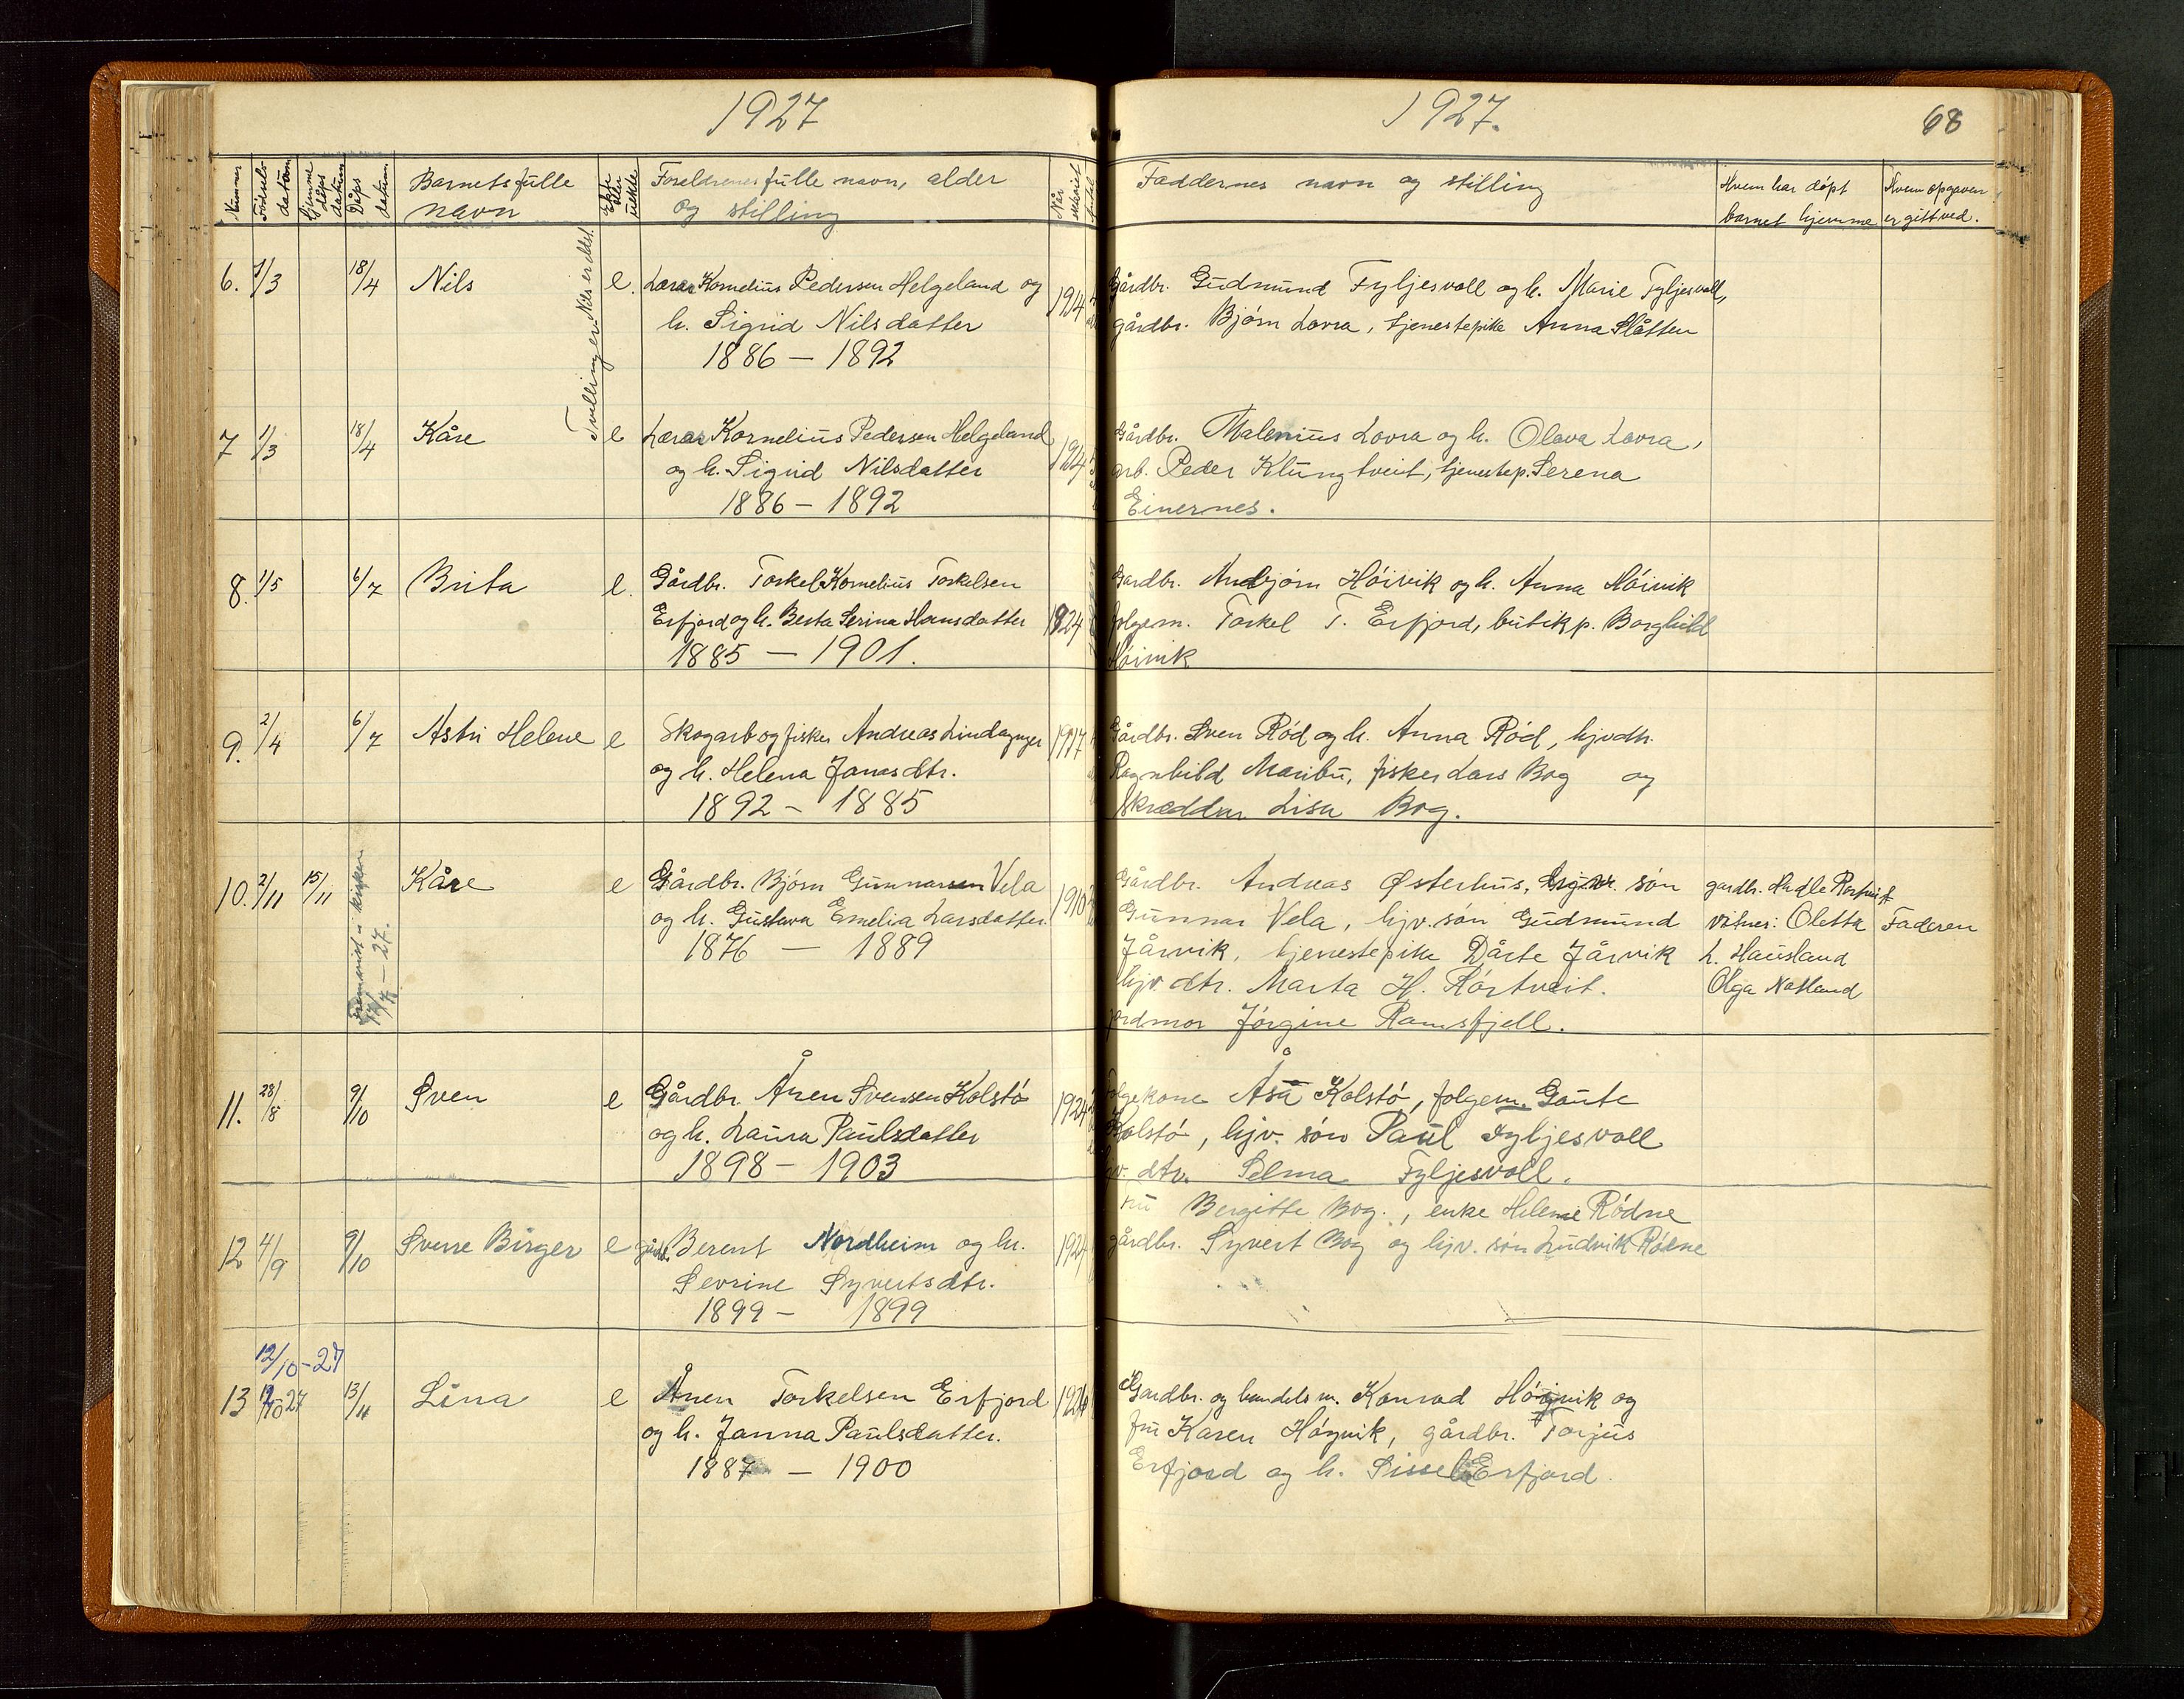 1927
Nummer
Fødsels datum
Hjemme dåps datum
Dåps datum
Barnets fulle navn
Ekte eller uekte
Foreldrenes fulle navn, alder og stilling
Når
6. 1/3 18/4 Nils e. Lærar Kornelius Pedersen Helgeland og
h. Sigrid Nilsdatter 1914
1886 – 1892
Tvillinger. Nils er eldst.
7 1/3 18/4 Kåre e Lærar Kornelius Pedersen Helgeland
og h. Sigrid Nilsdatter 1914
1886 – 1892
8. 1/5 6/7 Brita e. Gårdbr. Torkel Kornelius Torkelsen
Erfjord og h. Berta Serina Hansdatter 1924
1885 – 1901.
9. 2/4 6/7 Astri Helene e Skogarb og fisker Andreas 1917
og h. Helena Jonasdtr.
1892 – 1885
10. 2/11 15/11 Kåre e Gårdbr. Bjørn Gunnarsen Vela
og h. Gustava Emelia Larsdatter. 1910
1876 – 1889
Fremvist i kirken
17/7 – 27.
11. 28/8 9/10 Sven e Gårdbr. Ånen Svensen Kolstó
og h. Laura Paulsdatter 1924
1898 – 1903
12 4/9 9/10 Sverre Birger e gårdbr. Berent Nordheim og h. 1924
Sevrine Syvertsdtr.
1899 – 1899
12/10 – 27
13 12/10 27 13/11 Lina e Ånen Torkelsen Erfjord
og h. Janna Paulsdatter.
1887 – 1900
1927.
68
Faddernes navn og stilling
Hvem har dópt barnet hjemme
Hvem opgaven er gitt ved.
Gårdbr. Gudmund Fyljesvoll og h. Marie Fyljesvoll,
gårdbr. Bjórn Lovra, tjenestepike Anna Slåtten
Gårdbr. Malenius Lovra og h. Olava Lovra,
arb. Peder Klungtveit, tjenestep. Serena
Einernes.
Gardbr. Andbjórn Hóivik og h. Anna Hóivik
folgem. Torkel T. Erfjord, butikp. Borghild
Hóivik
Gårdbr. Sven Ród og h. Anna Ród, hjvdtr.
Ragnhild Maribu, fisker Lars Bog og
skrædder Lisa Bog.
Gårdbr. Andreas Østerhus, són
Gunnar Vela, hjv. són Gudmund
Jårvik, tjenestepike Dårte Jårvik
hjv. dtr. Marta H. Rórtveit.
jordmor Jórgine Ramsfjell.
gardbr.
vitner: Oletta
L. Hausland
Olga Natland
Faderen
Folgekone Åsa Kolstó, folgem. Gaute
Kolstó, hjv. són Paul Fyljesvoll
hjv. dtr. Selma Fyljesvoll.
fru Bergitte Bog., enke Helene Ródne
gårdbr. Syvert Bog og hjv. són Ludvik Ródne
Gardbr. og handelsm. Konrad Hóivik og
fru Karen Hóyvik, gårdbr. Torjus
Erfjord og h. Sissel Erfjord.